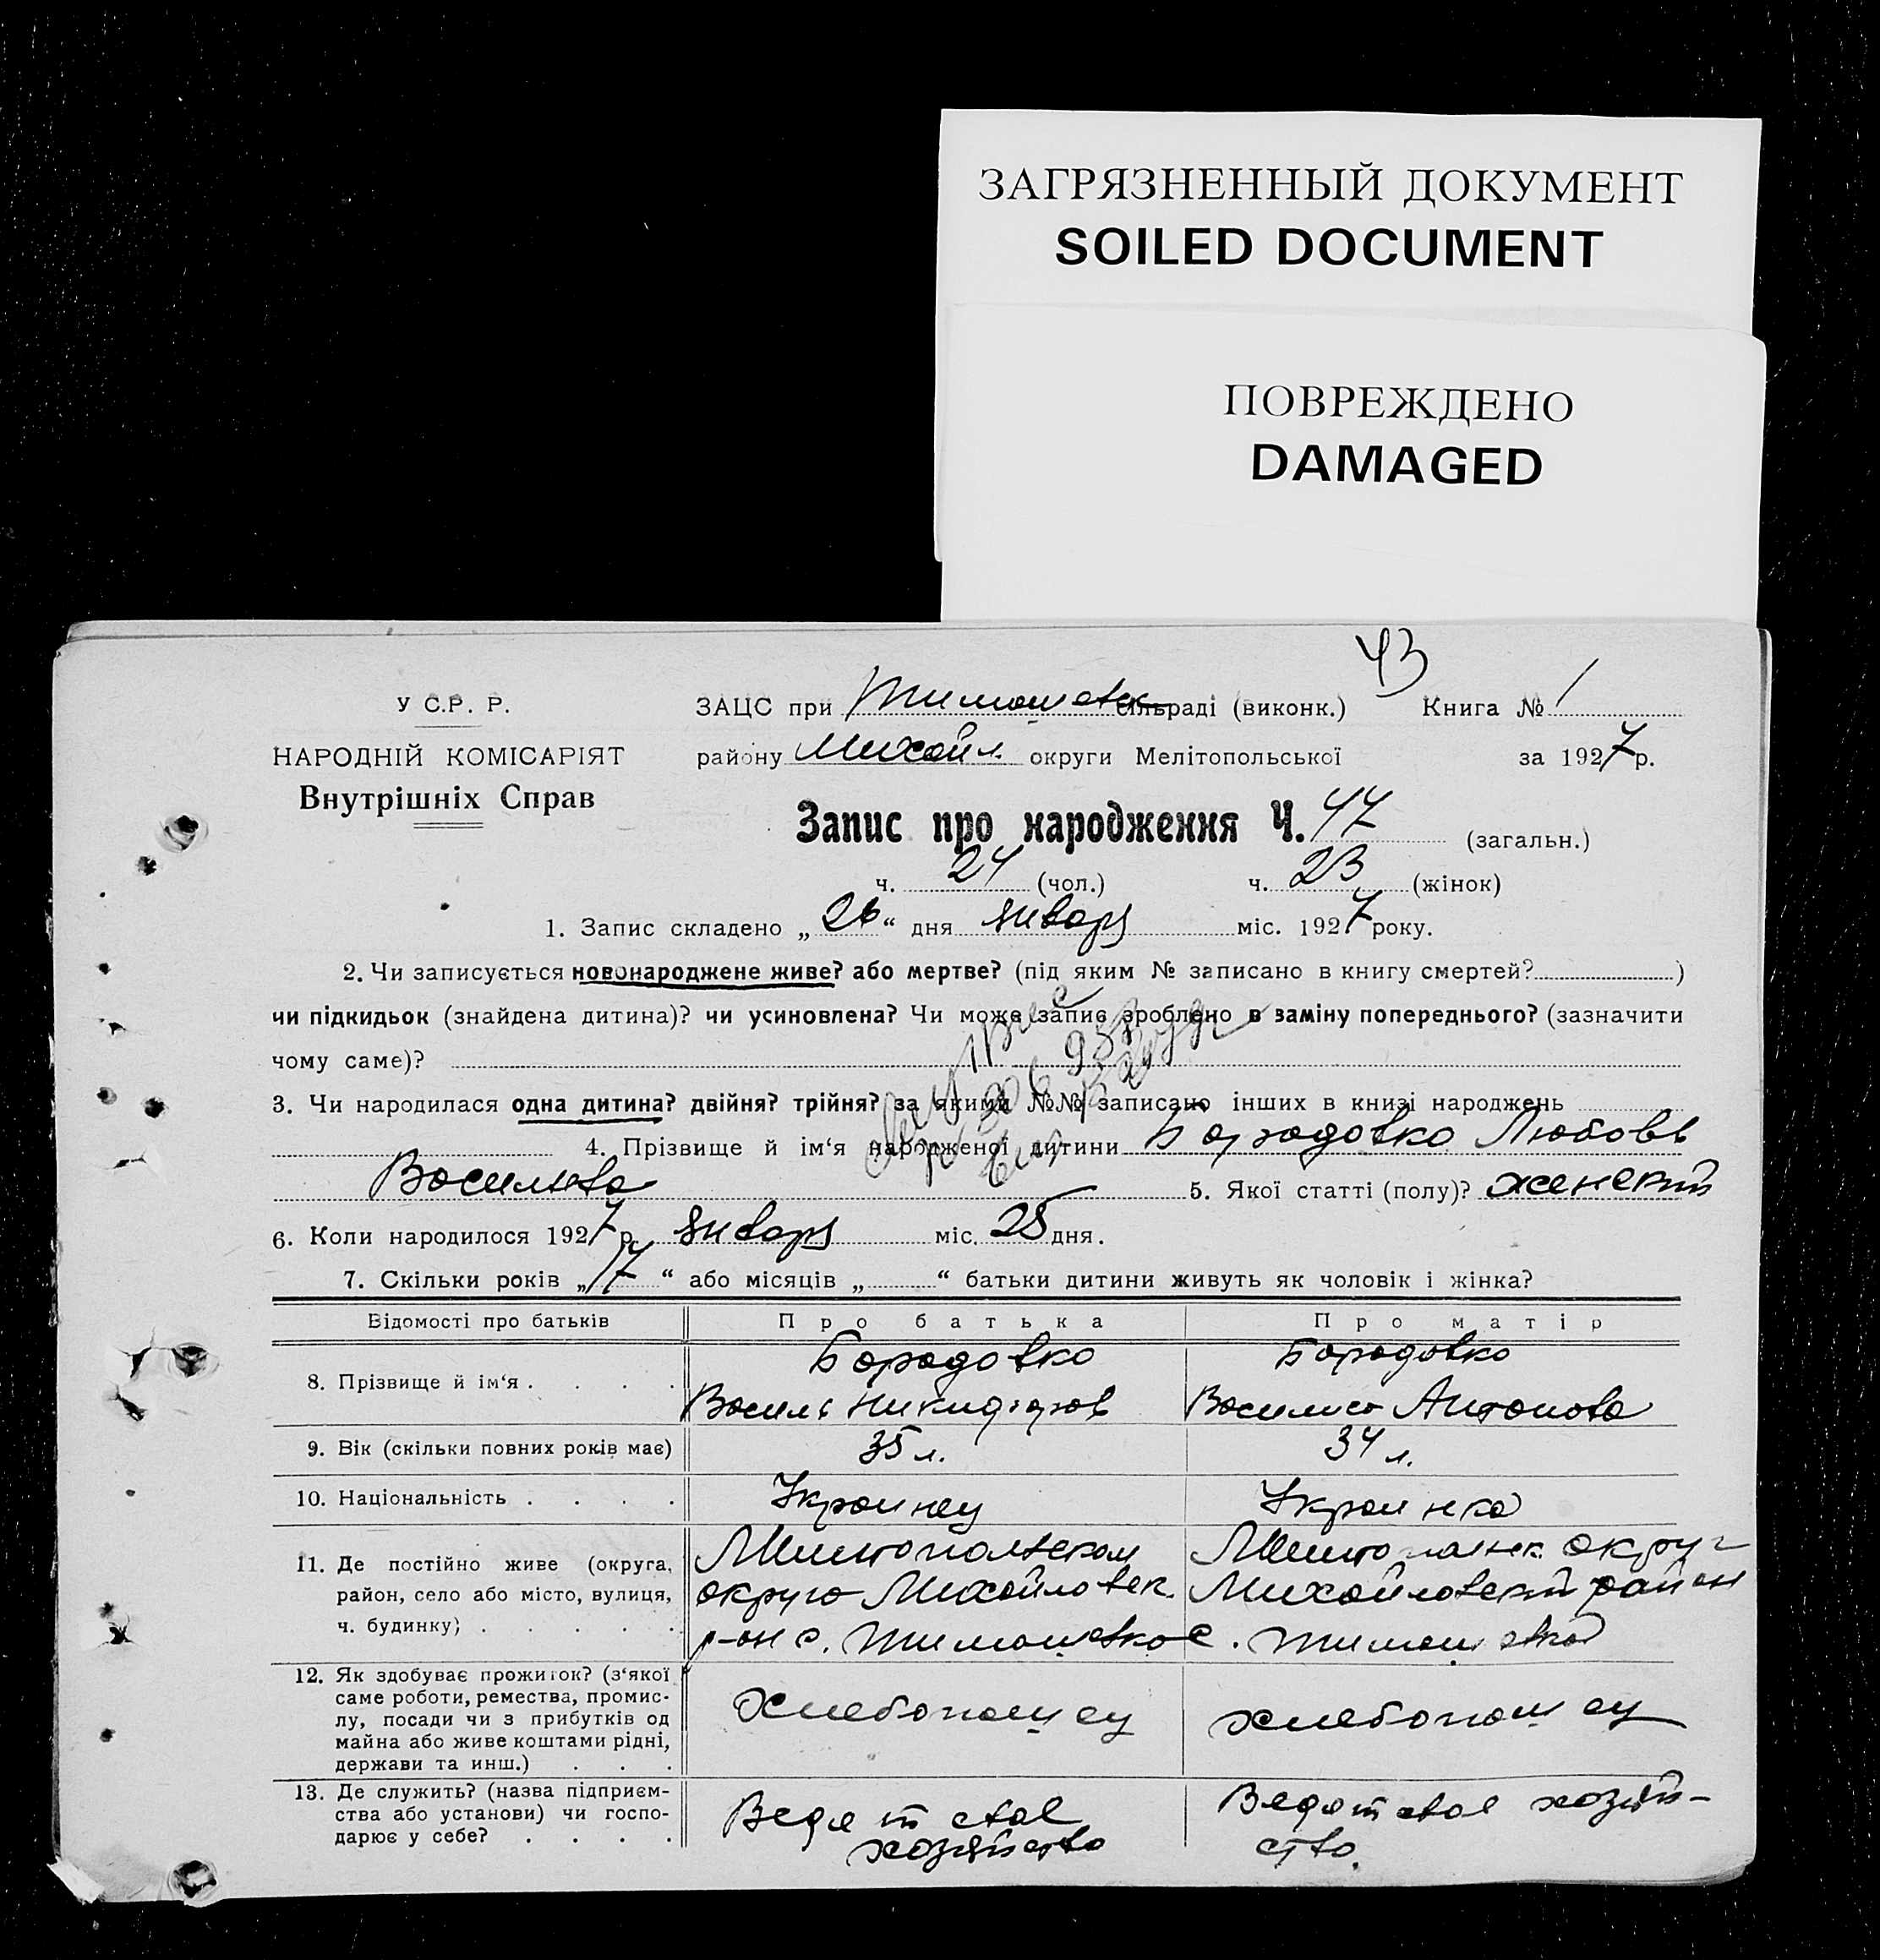 ЗАГРЯЗНЕННЫЙ ДОКУМЕНТ
SOILED DOCUMENT
ПОВРЕЖДЕНО
DAMAGED
43
У С.Р. Р.
ЗАЦС при Тимошевск сільраді (виконк.) Книга № 1
НАРОДНІЙ КОМІСАРІЯТ
району Михайл. округи Мелітопольської за 1927 р.
Внутрішніх Справ
Запис про народження Ч. 47 (загальн.)
ч. 24 (чол.) ч. 23 (жінок)
1. Запис складено „ 26 “ дня января міс. 1927 року.
2. Чи записується новонароджене живе? або мертве? (під яким № записано в книгу смертей? )
чи підкидьок (знайдена дитина)? чи усиновлена? Чи може запис зроблено в заміну попереднього? (зазначити
чому саме)?
3. Чи народилася одна дитина? двійня? трійня? за якими №№ записано інших в книзі народжень
4. Прізвище й ім‘я народженої дитини Бородовка Любовь
Васильева 5. Якої статті (полу)? женский
6. Коли народилося 1927 р. января міс. 25 дня.
7. Скільки років „ 17 “ або місяців „ “ батьки дитини живуть як чоловік і жінка?
Відомості про батьків Про батька Про матір
8. Прізвище й ім‘я . . . . Бородовко Василь Никифоров
Бородовко Василиса Антонова
9. Вік (скільки повних років має) 35 л. 34 л.
10. Національність . . . . Украинец Украинка
11. Де постійно живе (округа,
район, село або місто, вулиця,
ч. будинку) . . . . .
Мелитопольском
округа Михайловск.
р-он с. Тимошевка
Мелитопольск. округ
Михайловский район
с. Тимошевка
12. Як здобуває прожиток? (з‘якої
саме роботи, ремества, промис-
лу, посади чи з прибутків од
майна або живе коштами рідні,
держави та инш.) . . .
Хлебопашец
хлебопашец
13. Де служить? (назва підприєм-
ства або установи) чи госпо-
дарює у себе? . . . .
Ведет свое
хозяйство
Ведет свое хозяй-
ство.